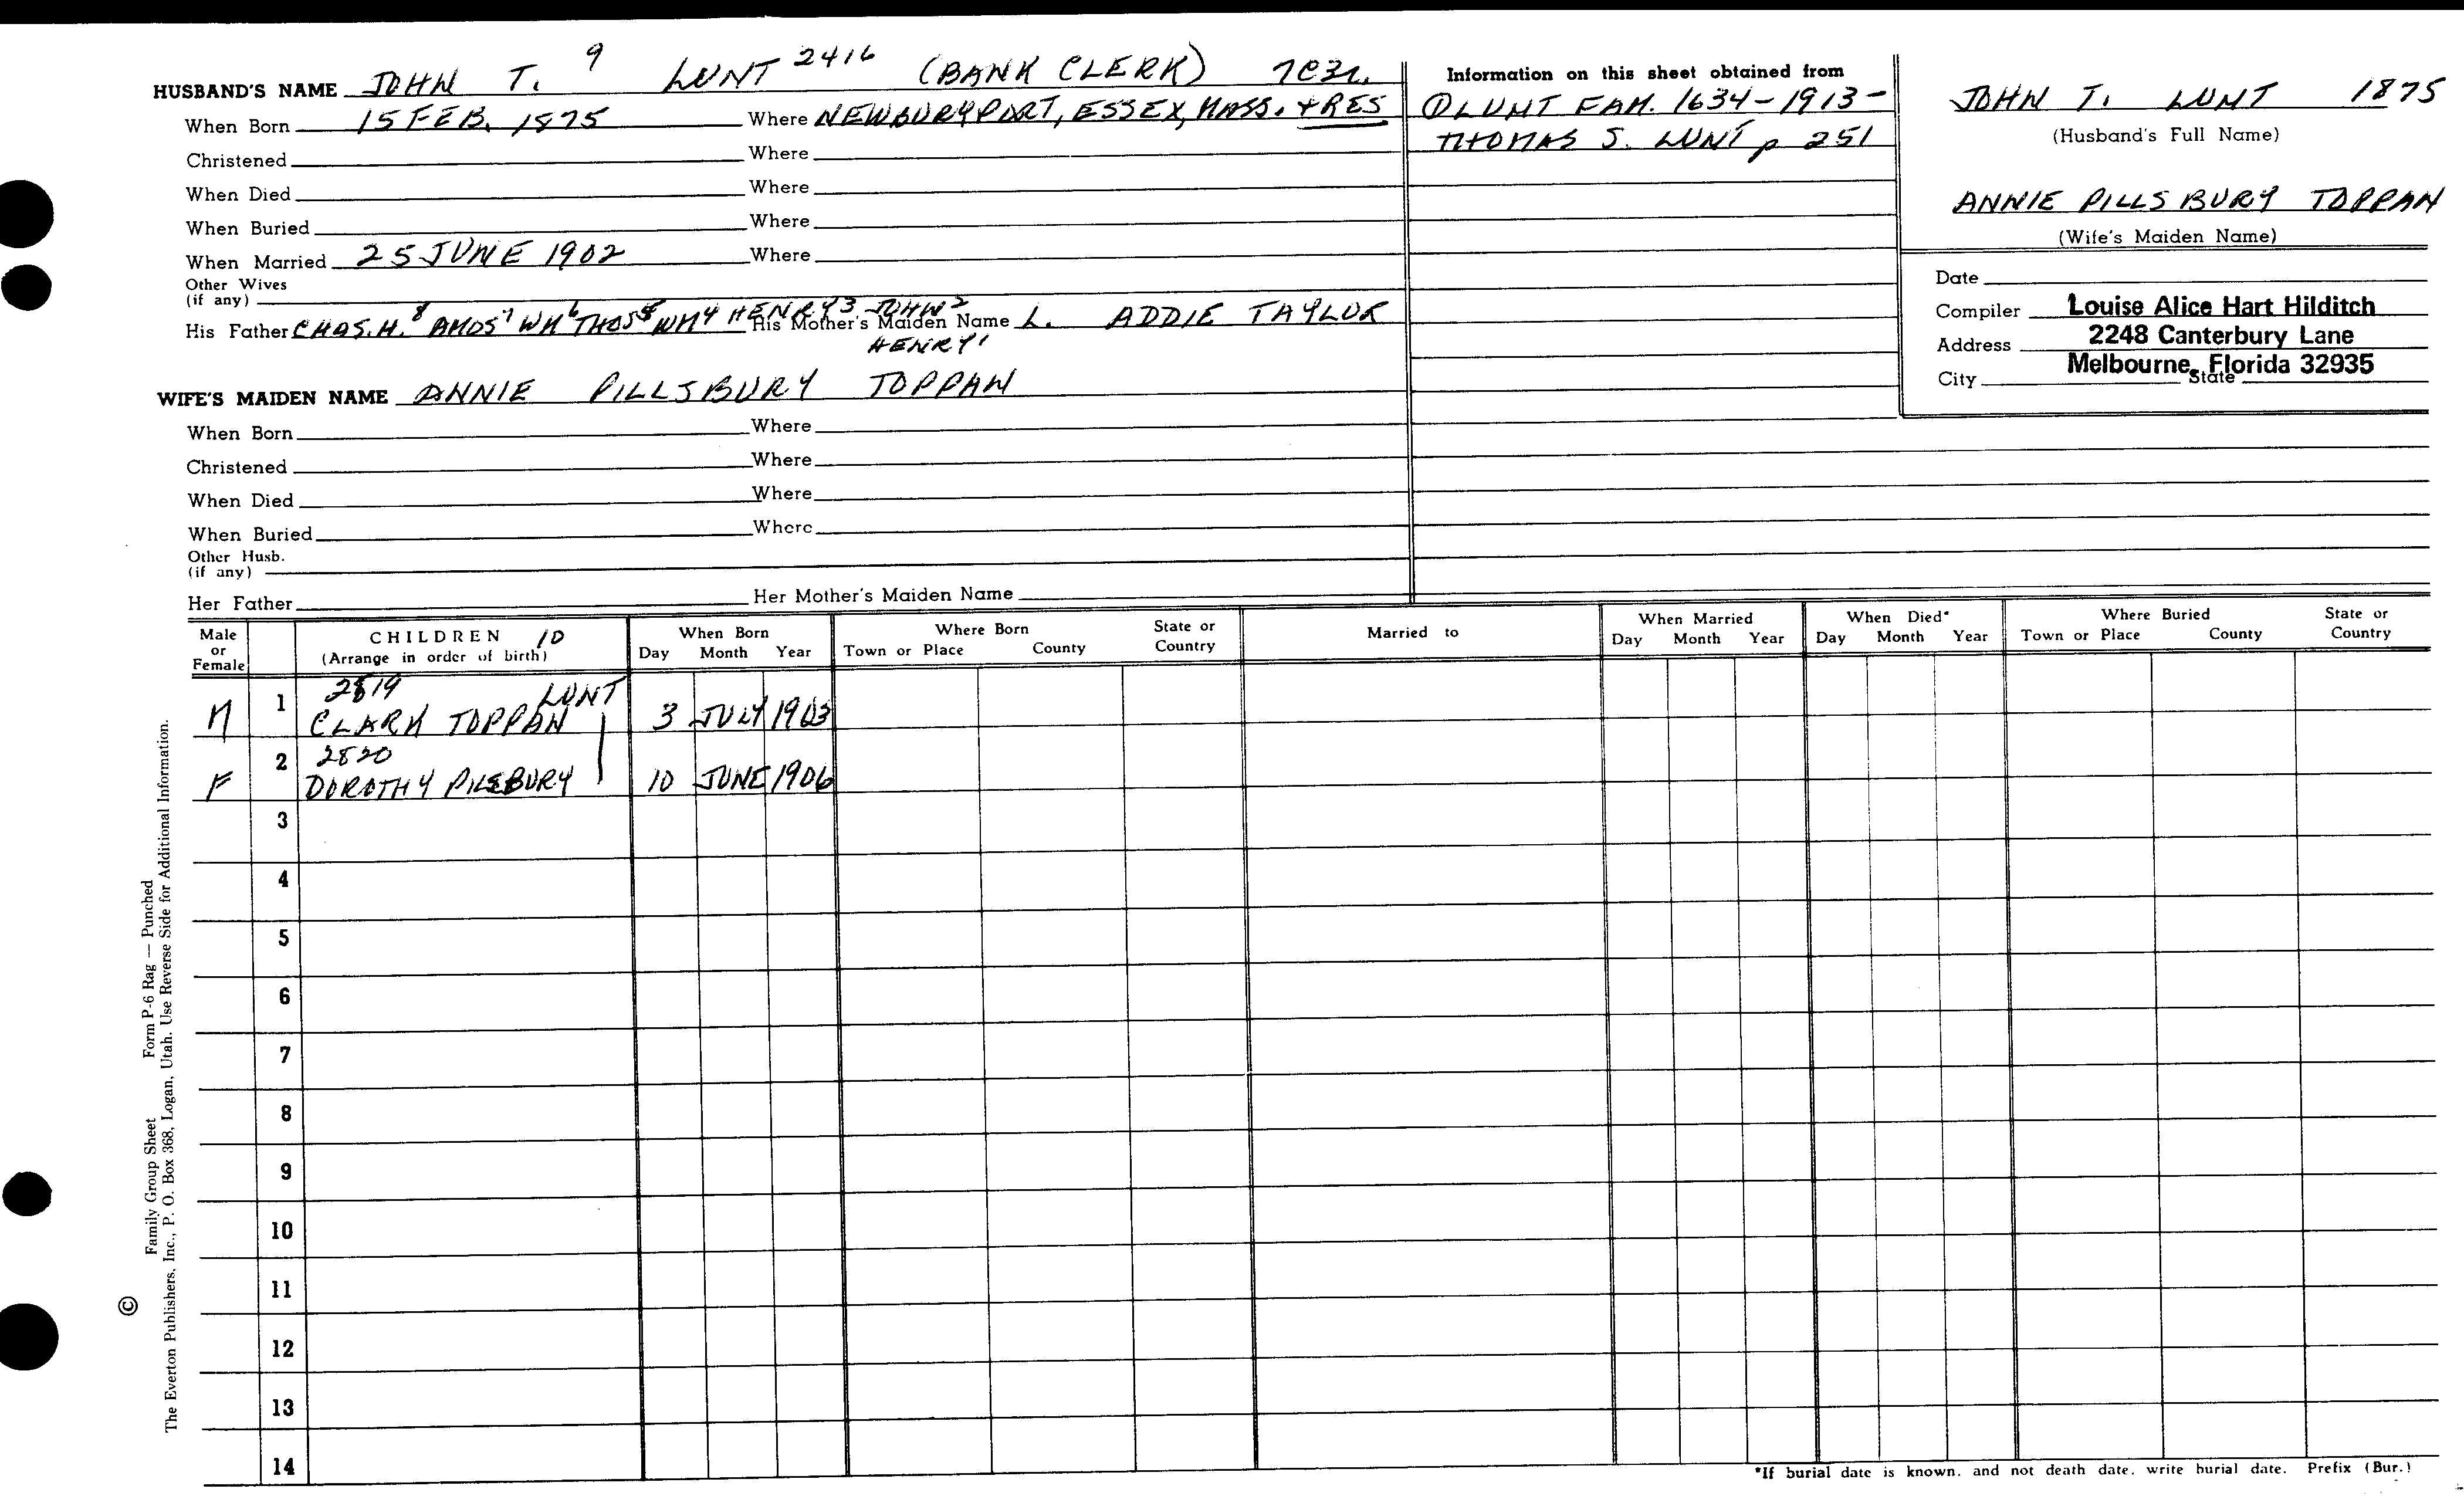 HUSBAND'S NAME JOHN T. 9 LUNT 2416 (BANK CLERK)
When Born 15 FEB. 1875 Where NEWBURYPORT, ESSEX, MASS. + RES
Christened Where
When Died Where
When Buried Where
When Married 25 JUNE 1902 Where
Other Wives
(if any)
His Father CHAS. H. 8 AMOS 7 WM 6 THOS 5 WM 4 HENRY 3 JOHN 2 His Mother's Maiden Name L. ADDIE TAYLOR
HENRY 1
WIFE'S MAIDEN NAME ANNIE PILLSBURY TOPPAN
When Born Where
Christened Where
When Died Where
When Buried Where
Other Husb.
(if any)
Her Father Her Mother's Maiden Name
Information on this sheet obtained from
① LUNT FAM. 1634-1913-
THOMAS S. LUNT p 251
JOHN T. LUNT 1875
(Husband's Full Name)
ANNIE PILLSBURY TOPPAN
(Wife's Maiden Name)
Date
Compiler Louise Alice Hart Hilditch
Address 2248 Canterbury Lane
Melbourne, Florida 32935
City State
Male or Female
CHILDREN 10
(Arrange in order of birth)
When Born
Day Month Year
Where Born
Town or Place County State or Country
Married to
When Married
Day Month Year
When Died*
Day Month Year
Where Buried
Town or Place County State or Country
2819 LUNT
M 1 CLARK TOPPAN 3 JULY 1903
2820
F 2 DOROTHY PILSBURY 10 JUNE 1906
3
4
5
6
7
8
9
10
11
12
13
14
*If burial date is known, and not death date, write burial date. Prefix (Bur.)
© Family Group Sheet Form P-6 Rag — Punched
The Everton Publishers, Inc., P. O. Box 368, Logan, Utah. Use Reverse Side for Additional Information.